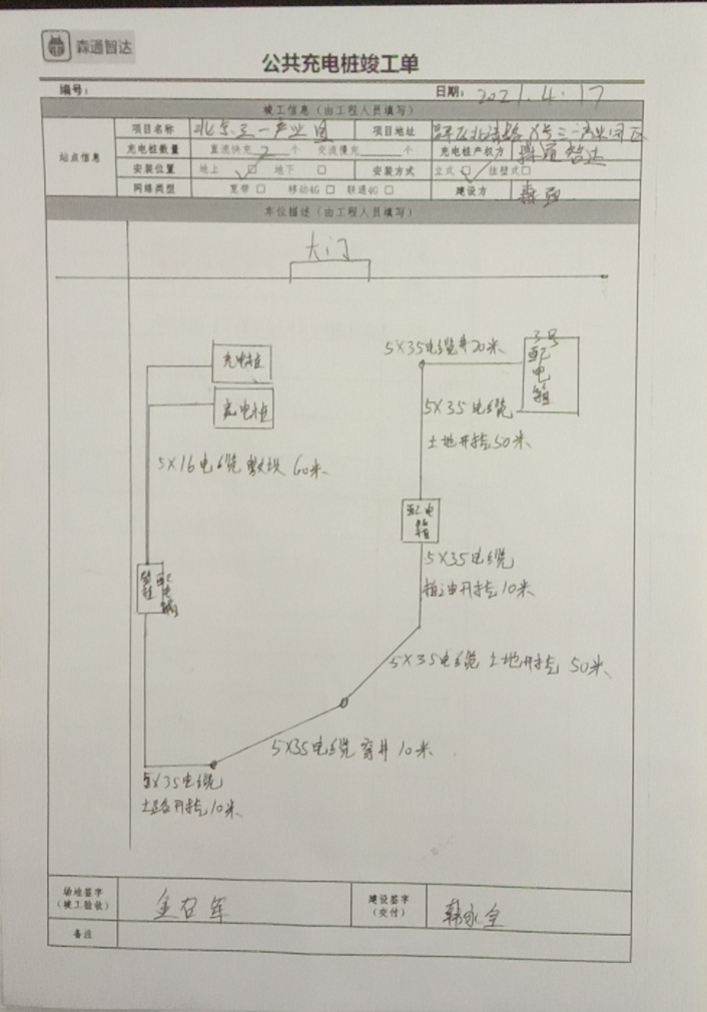 森通智达
公共充电桩竣工单
编号： 日期： 2021.4.17
竣工信息（由工程人员填写）
站点信息
项目名称 北京三一产业园 项目地址
充电桩数量 直流快充 2 个 交流慢充 个 充电桩产权方 森通智达
安装位置 地上 ☑ 地下 □ 安装方式 立式 ☑ 挂壁式 □
网络类型 宽带 □ 移动4G □ 联通4G □ 建设方
车位描述（由工程人员填写）
大门
5×35电缆井20米、
3号配电箱
充电桩
充电桩
5×35电缆
土地开挖50米、
5×16电缆 60米、
配电箱
5×35电缆
开挖10米、
配电箱
5×35电缆 土地开挖 50米、
5×35电缆 穿井 10米、
5×35电缆
土路开挖10米、
场地签字
（竣工验收）
建设签字
（交付）
韩永全
备注